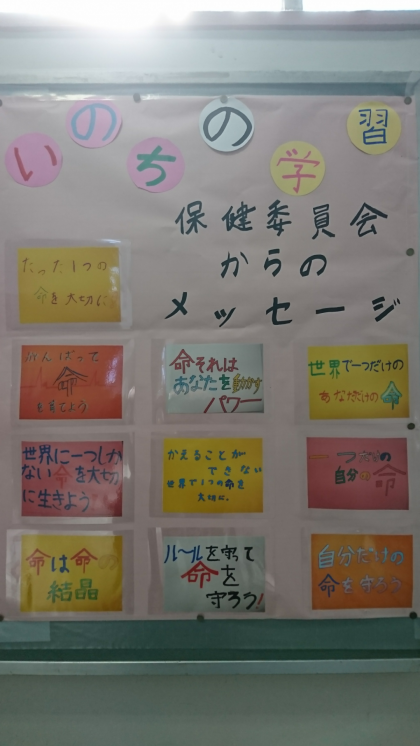 いのちの学習
保健委員会
からの
メッセージ
たった1つの
命を大切に
がんばって
命
を育てよう
命それは
あなたを動かす
パワー
世界で一つだけの
あなただけの命
世界に一つしか
ない命を大切
に生きよう
かえることが
できない
世界で1つの命を
大切に。
一つだけの
自分の命
命は命の
結晶
ルールを守って
命を
守ろう!
自分だけの
命を守ろう